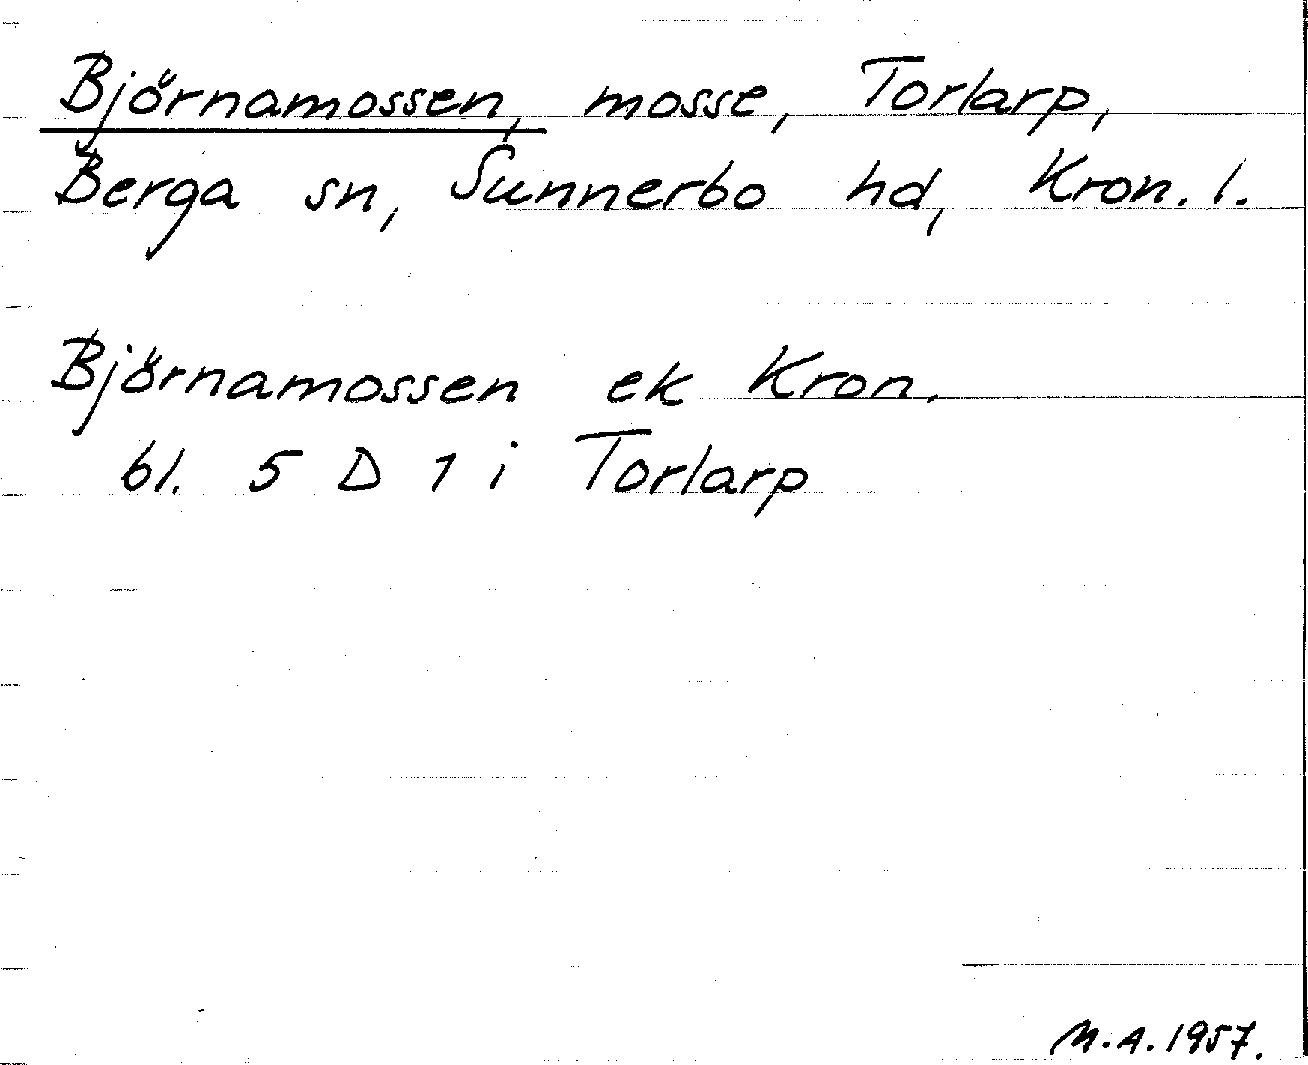 Björnamossen, mosse, Torlarp,
Berga sn, Sunnerbo hd, Kron. l.
Björnamossen ek Kron.
bl. 5 D 1 i Torlarp
M.A. 1957.